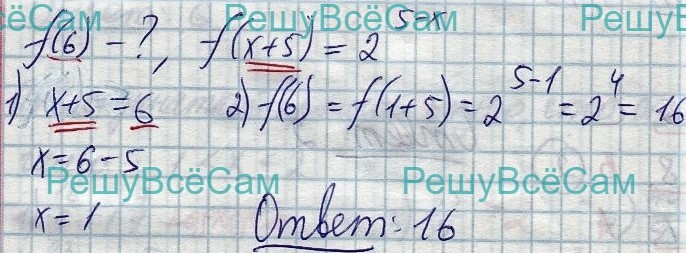 РешуВсёСам РешуВсёСам РешуВсёСам
f(6) - ?, f(x+5) = 2^(5-x)
1) x+5 = 6 2) f(6) = f(1+5) = 2^(5-1) = 2^4 = 16
x = 6 - 5
РешуВсёСам РешуВсёСам
x = 1 Ответ: 16